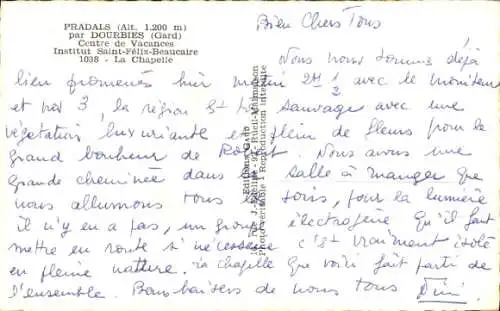 PRADALS (Alt. 1.200 m)
par DOURBIES (Gard)
Centre de Vacances
Institut Saint-Félix-Beaucaire
1038 - La Chapelle
Bien Chers Tous
Nous nous sommes déjà
bien promenés hier matin 2H 1/2 avec le moniteur
et nos 3, la région est sauvage avec une
végétation luxuriante et plein de fleurs pour le
grand bonheur de . Nous avons une
grande cheminée dans la salle à manger que
nous allumons tous les soirs, pour la lumière
il n'y en a pas, un groupe électrogène qu'il faut
mettre en route si nécessaire c'est vraiment isolé
en pleine nature. la chapelle que voici fait partie de
l'ensemble. Bons baisers de nous tous
Editions Gard
Photo véritable - Reproduction interdite